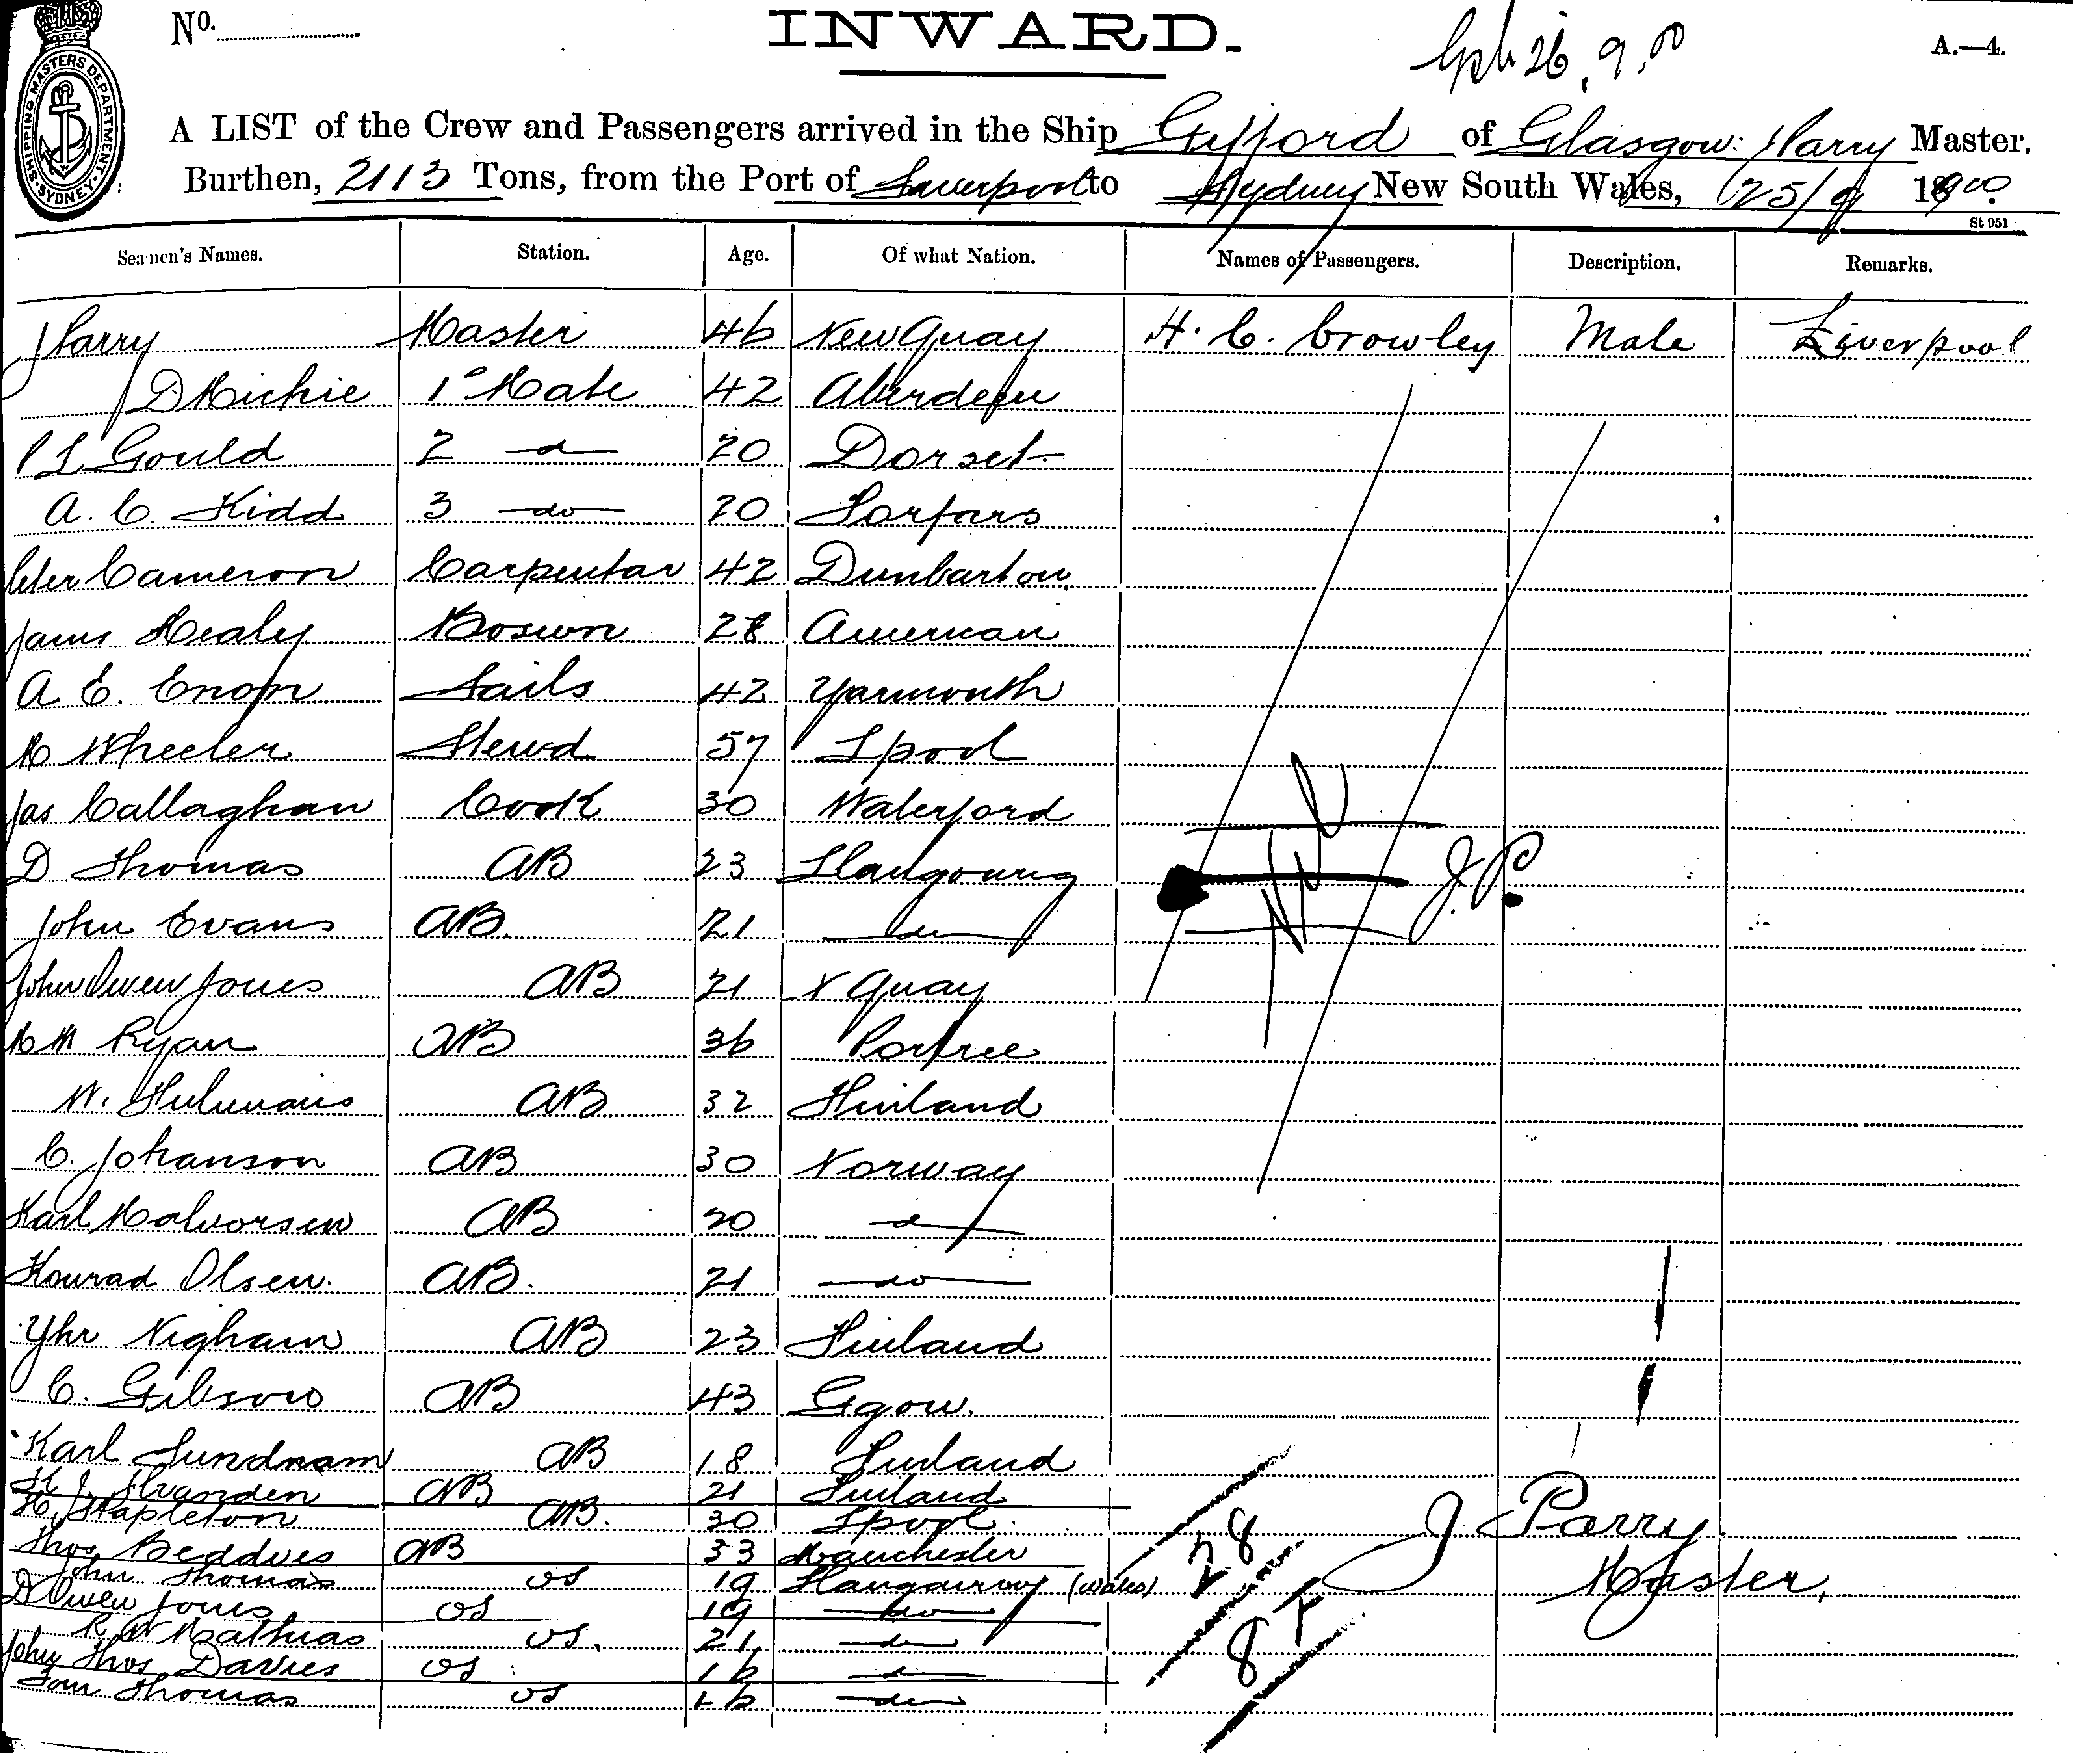 No.
INWARD.
26.9.00
A.—4.
SHIPPING MASTERS DEPARTMENT SYDNEY
A LIST of the Crew and Passengers arrived in the Ship Gifford of Glasgow: J Parry Master.
Burthen, 2113 Tons, from the Port of Liverpool to Sydney New South Wales, 25/9 1900.
St 951
Seamen's Names. Station. Age. Of what Nation. Names of Passengers. Description. Remarks.
J Parry Master 46 New Quay H. C. Crowley Male Liverpool
D Michie 1° Mate 42 Aberdeen
P L Gould 2 do 20 Dorset
A. C. Kidd 3 do 20 Forfars
Peter Cameron Carpentar 42 Dunbarton
James Healy Boswn 28 American
A E. Enon Sails 42 Yarmouth
M Wheeler Stewd 57 Lpool
Jas Callaghan Cook 30 Waterford
D Thomas AB 23 J.P.
John Evans AB. 21 do
John Owen Jones AB 21 N Quay
M M Ryan AB 36 Portree
W. AB 32 Finland
C. Johanson AB 30 Norway
Karl Halvorsen AB 20 do
Konrad Olsen. AB. 21 do
Yhr Nigham AB 23 Finland
C. Gibson AB 43 Ggow.
Karl Sundnam AB 18 Finland
AB 21 Finland
H. Stapleton AB. 30 Lpool. J Parry
Thos Beddoes AB 33 Manchester 28
John Thomas OS 19 (Wales) Master,
D Owen Jones OS 19 do
R W Mathias OS. 21 do
John Thos Davies OS 16 do
Tom Thomas OS 16 do